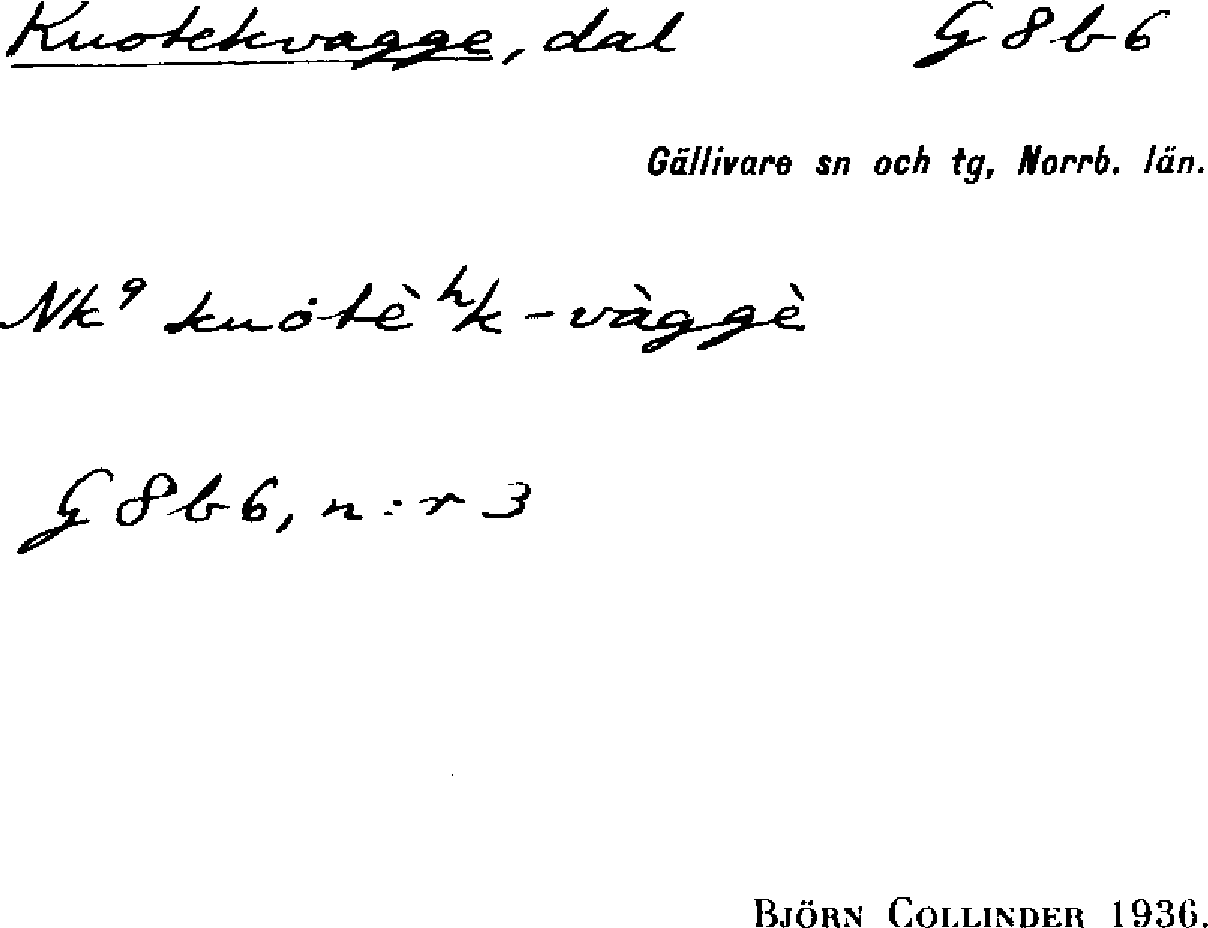 Kuotekvagge, dal G8b6
Gällivare sn och tg, Norrb. län.
Nk⁹ kuȯtèʰk-vàggè
G8b6, n:r 3
BJÖRN COLLINDER 1936.